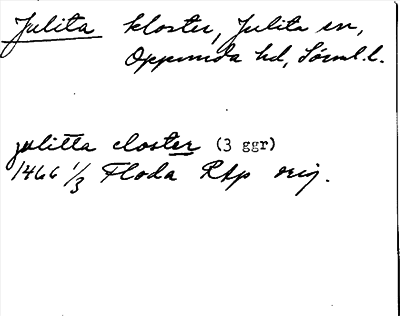 Julita kloster, Julita sn,
Oppunda hd, Sörml. l.
julitta closter (3 ggr)
1466 1/3 Floda RAp orig.